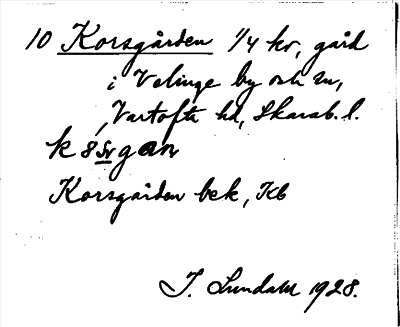 10 Korsgården 1/4 kv, gård
i Velinge by och sn,
Vartofta hd, Skarab. l.
Korsgården bek, Kb
I. Lundahl 1928.